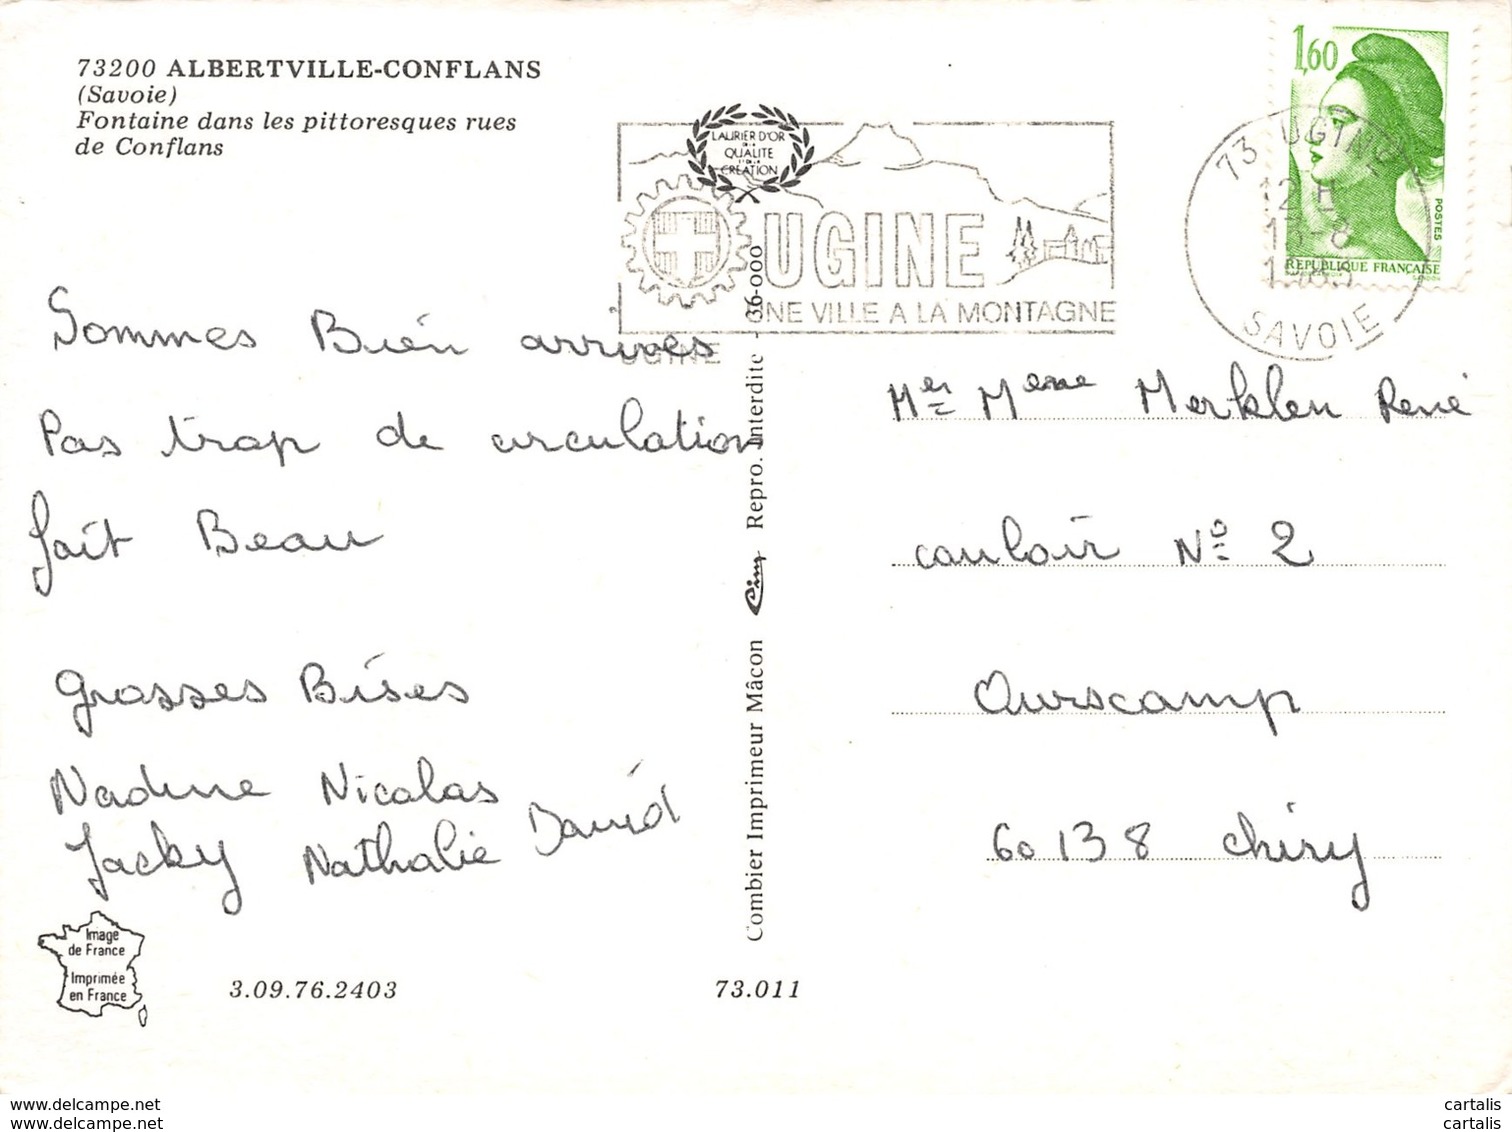 73200 ALBERTVILLE-CONFLANS
(Savoie)
Fontaine dans les pittoresques rues
de Conflans
LAURIER D'OR
DE LA
QUALITE
ET DE LA
CREATION
UGINE
UNE VILLE A LA MONTAGNE
UGINE
1,60
POSTES
REPUBLIQUE FRANÇAISE
73 UGINE
12 H
13-8
SAVOIE
Sommes Bien arrives
Pas trop de circulation
fait Beau
grosses Bises
Nadine Nicolas
Jacky Nathalie David
Combier Imprimeur Mâcon Cim Repro. Interdite - 36-000
Mer Meme Merklen René
couloir N° 2
Ourscamp
60138 chiry
Image
de France
Imprimée
en France
3.09.76.2403
73.011
cartalis
cartalis
www.delcampe.net
www.delcampe.net